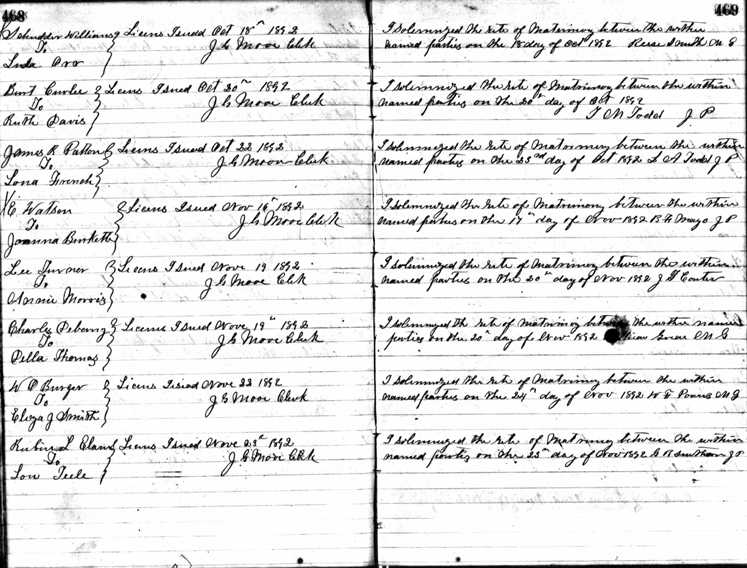 468
Williams } Licens Issued Oct 18th 1892
To
J G Moore Clerk
Burt Curlee } Licens Issued Oct 20th 1892
To
J G Moore Clerk
Ruth Davis
James R Patton } Licens Issued Oct 22 1892
To
J G Moore Clerk
Lona French
E Watson } Licens Issued Nov 16th 1892
To
J G Moore Clerk
Joanna Burkett
Lee Turner } Licens Issued Nove 19 1892
To
J G Moore Clerk
Morris
Charly } Licens Issued Nove 19th 1892
To
J G Moore Clerk
Della Thomas
W P Burger } Licens Issued Nove 22 1892
To
J G Moore Clerk
Eliza J Smith
Rubin L } Licens Issued Nove 23d 1892
To
J G Moore Clerk
Lou Teele
469
I solemnized the rite of Matrimony between the within
named parties on the 18 day of Oct 1892 Reese Smith M G
I solemnized the rite of Matrimony between the within
named parties on the 20th day of Oct 1892
T M Todd J P
I solemnized the rite of Matrimony between the within
named parties on the 23rd day of Oct 1892 L A Todd J P
I solemnized the rite of Matrimony between the within
named parties on the 17th day of Nov 1892 Mayo J P
I solemnized the rite of Matrimony between the within
named parties on the 20th day of Nov 1892 J G
I solemnized the rite of Matrimony between the within named
parties on the 20 day of Nov 1892 M G
I solemnized the rite of Matrimony between the within
named parties on the 24th day of Nov 1892 W F M G
I solemnized the rite of Matrimony between the within
named parties on the 25th day of Nov 1892 J P